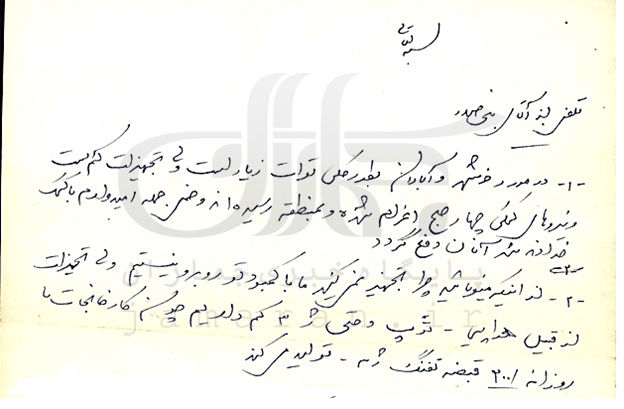 بسمه تعالی
تلفن از آقای بنی‌صدر
۱- در مورد خرمشهر و آبادان بطور کلی قوات زیاد است ولی تجهیزات کم است
و نیروهای کمکی چهار صبح اعزام شده و بمنطقه رسیده‌اند و ضمن حمله امیدوارم با کمک
خداوند شر آنان دفع گردد
۲- از اینکه میگویید چرا تجهیز نمی‌کنید ما با کمبود نفر روبرو نیستیم ولی تجهیزات
از قبیل هواپیما - توپ و حتی ژ ۳ کم داریم چون کارخانجات ما
روزانه ۳۰۰ قبضه تفنگ ژ۳ - تولید می‌کند
پایگاه خبری جماران
jamaran.ir